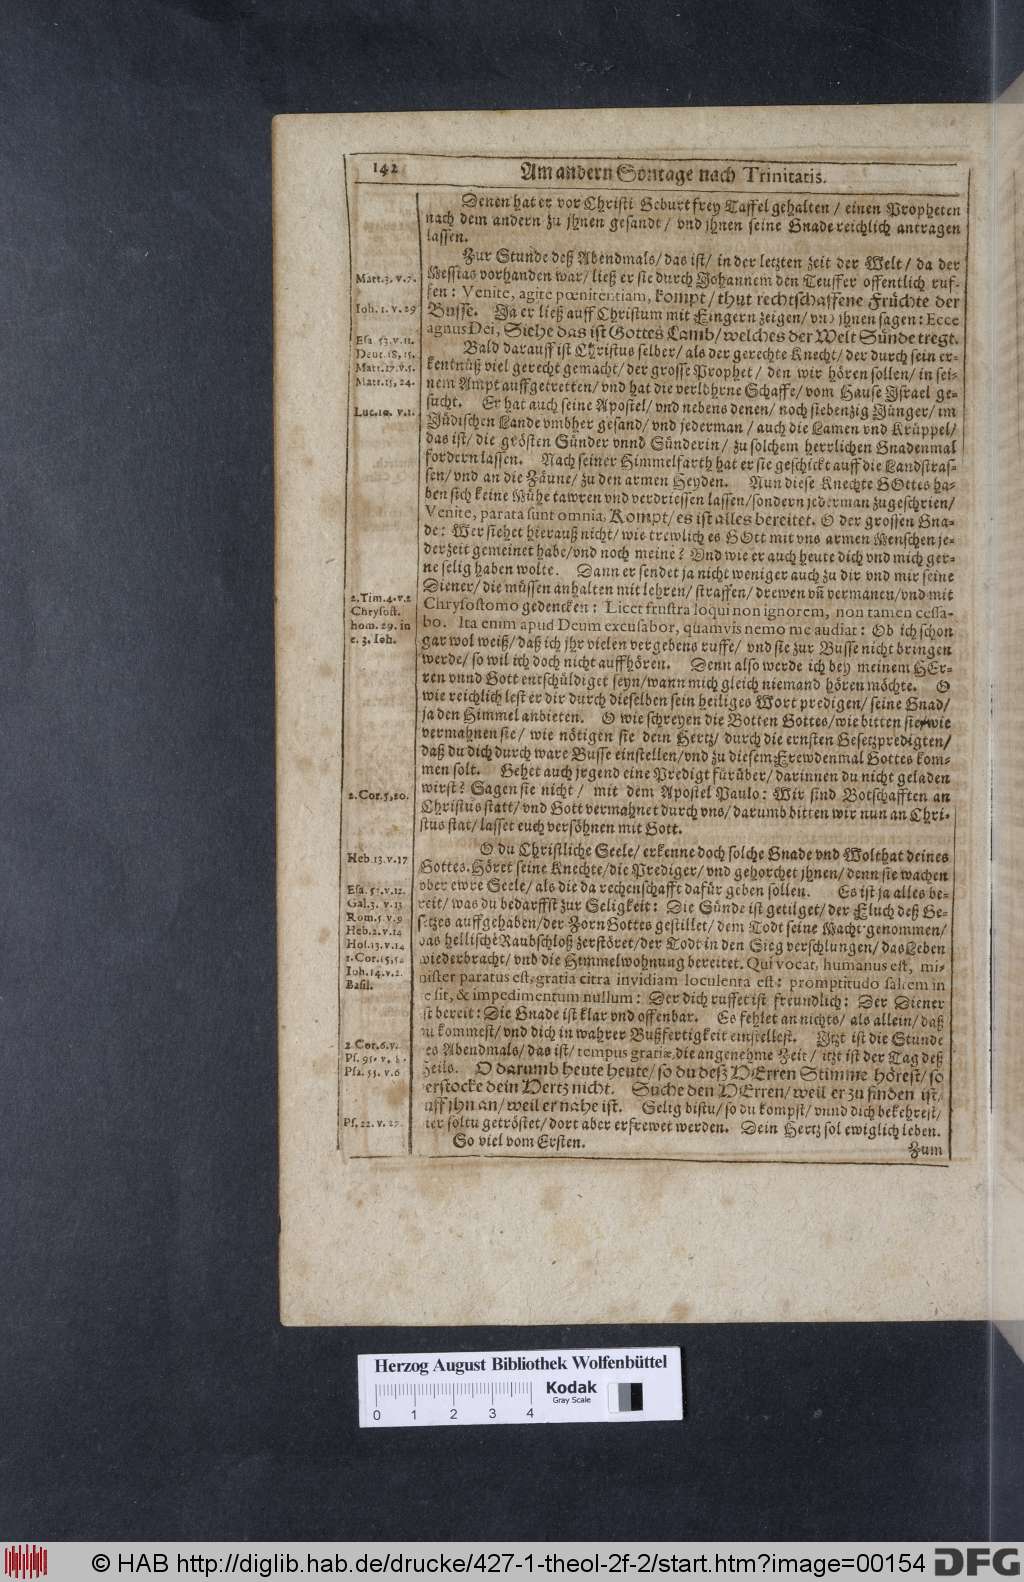 142
Am andern Sontage nach Trinitatis.
Denen hat er vor Christi Geburt frey Taffel gehalten / einen Propheten
nach dem andern zu jhnen gesandt / vnd jhnen seine Gnade reichlich antragen
lassen.
Zur Stunde deß Abendmals / das ist / in der letzten zeit der Welt / da der
Messias vorhanden war / ließ er sie durch Johannem den Teuffer offentlich ruf-
fen: Venite, agite pœnitentiam, kompt / thut rechtschaffene Früchte der
Busse. Ja er ließ auff Christum mit Fingern zeigen / vnd jhnen sagen: Ecce
agnus Dei, Siehe das ist Gottes Lamb / welches der Welt Sünde tregt.
Bald darauff ist Christus selber / als der gerechte Knecht / der durch sein er-
kentnüß viel gerecht gemacht / der grosse Prophet / den wir hören sollen / in sei-
nem Ampt auffgetretten / vnd hat die verlohrne Schaffe / vom Hause Jsrael ge-
sucht. Er hat auch seine Apostel / vnd nebens denen / noch siebenzig Jünger / im
Jüdischen Lande vmbher gesand / vnd jederman / auch die Lamen vnd Krüppel /
das ist / die grösten Sünder vnnd Sünderin / zu solchem herrlichen Gnadenmal
fordern lassen. Nach seiner Himmelfarth hat er sie geschickt auff die Landstras-
sen / vnd an die Zäune / zu den armen Heyden. Nun diese Knechte GOttes ha-
ben sich keine Mühe tawren vnd verdriessen lassen / sondern jederman zugeschrien /
Venite, parata sunt omnia, Kompt / es ist alles bereitet. O der grossen Gna-
de: Wer siehet hierauß nicht / wie trewlich es GOtt mit vns armen Menschen je-
derzeit gemeinet habe / vnd noch meine? Vnd wie er auch heute dich vnd mich ger-
ne selig haben wolte. Dann er sendet ja nicht weniger auch zu dir vnd mir seine
Diener / die müssen anhalten mit lehren / straffen / drewen vn̄ vermanen / vnd mit
Chrysostomo gedencken: Licet frustra loqui non ignorem, non tamen cessa-
bo. Ita enim apud Deum excusabor, quamvis nemo me audiat: Ob ich schon
gar wol weiß / daß ich jhr vielen vergebens ruffe / vnd sie zur Busse nicht bringen
werde / so wil ich doch nicht auffhören. Denn also werde ich bey meinem HEr-
ren vnnd Gott entschüldiget seyn / wann mich gleich niemand hören möchte. O
wie reichlich lest er dir durch dieselben sein heiliges Wort predigen / seine Gnad /
ja den Himmel anbieten. O wie schreyen die Botten Gottes / wie bitten sie / wie
vermahnen sie / wie nötigen sie dein Hertz / durch die ernsten Gesetzpredigten /
daß du dich durch ware Busse einstellen / vnd zu diesem Frewdenmal Gottes kom-
men solt. Gehet auch jrgend eine Predigt fürüber / darinnen du nicht geladen
wirst? Sagen sie nicht / mit dem Apostel Paulo: Wir sind Botschafften an
Christus statt / vnd Gott vermahnet durch vns / darumb bitten wir nun an Chri-
stus stat / lasset euch versöhnen mit Gott.
O du Christliche Seele / erkenne doch solche Gnade vnd Wolthat deines
Gottes. Höret seine Knechte / die Prediger / vnd gehorchet jhnen / denn sie wachen
vber ewre Seele / als die da rechenschafft dafür geben sollen. Es ist ja alles be-
reit / was du bedarffst zur Seligkeit: Die Sünde ist getilget / der Fluch deß Ge-
setzes auffgehaben / der Zorn Gottes gestillet / dem Todt seine Macht genommen /
das hellische Raubschloß zerstöret / der Todt in den Sieg verschlungen / das Leben
wiederbracht / vnd die Himmelwohnung bereitet. Qui vocat, humanus est, mi-
nister paratus est, gratia citra invidiam loculenta est: promptitudo saltem in
te sit, & impedimentum nullum: Der dich ruffet ist freundlich: Der Diener
ist bereit: Die Gnade ist klar vnd offenbar. Es fehlet an nichts / als allein / daß
du kommest / vnd dich in wahrer Bußfertigkeit einstellest. Jtzt ist die Stunde
des Abendmals / das ist / tempus gratiæ, die angenehme Zeit / itzt ist der Tag deß
Heils. O darumb heute heute / so du deß HErren Stimme hörest / so
verstocke dein Hertz nicht. Suche den HErren / weil er zu finden ist /
ruff jhn an / weil er nahe ist. Selig bistu / so du kompst / vnnd dich bekehrest /
hier soltu getröstet / dort aber erfrewet werden. Dein Hertz sol ewiglich leben.
So viel vom Ersten.
Zum
Matt. 3. v. 7.
Ioh. 1. v. 29
Esa. 53. v. 11.
Deut. 18, 15.
Matt. 17. v. 5.
Matt. 15, 24.
Luc. 10. v. 1.
2. Tim. 4. v. 2
Chrysost.
hom. 29. in
c. 3. Ioh.
2. Cor. 5, 20.
Heb. 13. v. 17
Esa. 53. v. 12.
Gal. 3. v. 13
Rom. 5 v. 9
Heb. 2. v. 14
Hos. 13. v. 14
1. Cor. 15, 54
Ioh. 14. v. 2.
Basil.
2 Cor. 6. v.
Ps. 95. v. 8.
Psa. 55. v. 6
Ps. 22. v. 27.
Herzog August Bibliothek Wolfenbüttel
Kodak
Gray Scale
0 1 2 3 4
© HAB http://diglib.hab.de/drucke/427-1-theol-2f-2/start.htm?image=00154
DFG